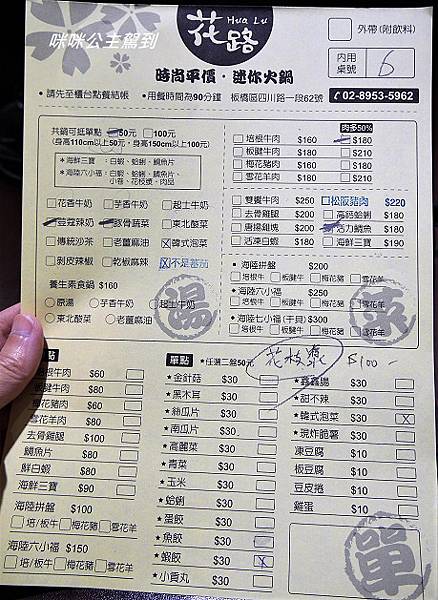 咪咪公主駕到
花路
Hua Lu
時尚平價・迷你火鍋
外帶(附飲料)
內用桌號 6
・請先至櫃台點餐結帳 ・用餐時間為90分鐘 板橋區四川路一段62號 02-8953-5962
共鍋可抵單點 50元 100元
(身高110cm以上50元,身高150cm以上100元)
*海鮮三寶:白蝦、蛤蜊、鯛魚片
*海陸六小福:白蝦、蛤蜊、鯛魚片、
小卷、花枝漿、肉品
花香牛奶 芋香牛奶 起士牛奶
荳蔻辣奶 豚骨蔬菜 東北酸菜
傳統沙茶 老薑麻油 韓式泡菜
剝皮辣椒 乾椒麻辣 不是蕃茄
養生素食鍋 $160
原湯 芋香牛奶 起士牛奶
東北酸菜 老薑麻油
湯
肉多50%
培根牛肉 $160 $180
板腱牛肉 $180 $210
梅花豬肉 $160 $180
雪花羊肉 $180 $210
雙饗牛肉 $250 松阪豬肉 $220
去骨雞腿 $200 高鈣蛤蜊 $180
唐揚雞塊 $200 活力鯛魚 $180
活凍白蝦 $180 海鮮三寶 $190
・海陸拼盤 $200
培根牛 板腱牛 梅花豬 雪花羊
・海陸六小福 $250
培根牛 板腱牛 梅花豬 雪花羊
・海陸七小福(干貝) $300
培根牛 板腱牛 梅花豬 雪花羊
花枝漿 $100-
點
根牛肉 $60
板腱牛肉 $80
梅花豬肉 $60
雪花羊肉 $80
去骨雞腿 $100
鯛魚片 $80
鮮白蝦 $80
海鮮三寶 $90
海陸拼盤 $100
培/板牛 梅花豬 雪花羊
海陸六小福 $150
培/板牛 梅花豬 雪花羊
單點 *任選二盤50元
★金針菇 $30
★黑木耳 $30
★絲瓜片 $30
★南瓜片 $30
★高麗菜 $30
★青菜 $30
★玉米 $30
★蛤蜊 $30
★蛋餃 $30
★魚餃 $30
★蝦餃 $30
★小貢丸 $30
★鑫鑫腸 $30
★甜不辣 $30
★韓式泡菜 $30
★現炸脆薯 $30
凍豆腐 $20
板豆腐 $20
豆皮捲 $10
雞蛋 $10
單